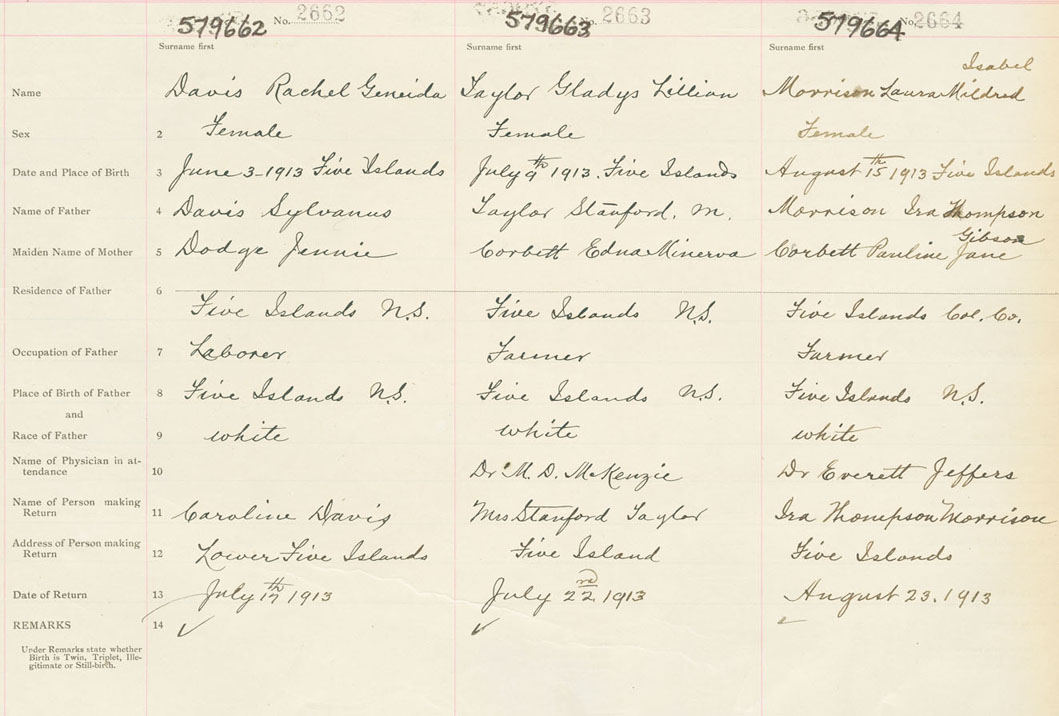 579662 No. 2662 579663 No. 2663 579664 No. 2664
Surname first Surname first Surname first
Isabel
Name Davis Rachel Geneida Taylor Gladys Lillian Morrison Laura Mildred
Sex 2 Female Female Female
Date and Place of Birth 3 June 3-1913 Five Islands July 9th 1913. Five Islands August 15th 1913 Five Islands
Name of Father 4 Davis Sylvanus Taylor Stanford. M. Morrison Ira Thompson
Gibson
Maiden Name of Mother 5 Dodge Jennie Corbett Edna Minerva Corbett Pauline Jane
Residence of Father 6
Five Islands N.S. Five Islands N.S. Five Islands Col. Co.
Occupation of Father 7 Laborer Farmer Farmer
Place of Birth of Father 8 Five Islands N.S. Five Islands N.S. Five Islands N.S.
and
Race of Father 9 white white white
Name of Physician in at-
tendance 10 Dr. M. D. McKenzie Dr Everett Jeffers
Name of Person making
Return 11 Caroline Davis Mrs Stanford Taylor Ira Thompson Morrison
Address of Person making
Return 12 Lower Five Islands Five Island Five Islands
Date of Return 13 July 17th 1913 July 22nd 1913 August 23. 1913
REMARKS 14 ✓ ✓ ✓
Under Remarks state whether
Birth is Twin, Triplet, Ille-
gitimate or Still-birth.